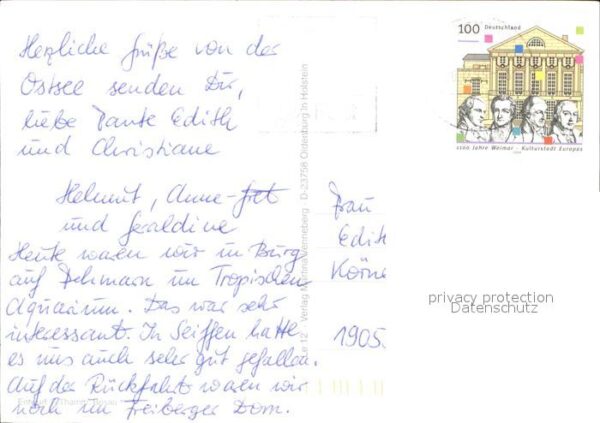 Herzliche Grüße von der
Ostsee senden Dir,
liebe Tante Edith
und Christiane
Helmut, Anne-Gret
und Geraldine
Heute waren wir in Burg
auf Fehmarn im Tropischen
Aquarium. Das war sehr
interessant. In Seiffen hatte
es uns auch sehr gut gefallen.
Auf der Rückfahrt waren wir
noch im Freiberger Dom.
Verlag D-23758 Oldenburg in Holstein
100 Deutschland
1100 Jahre Weimar Kulturstadt Europas
Frau
Edit
Körne
1905
privacy protection
Datenschutz